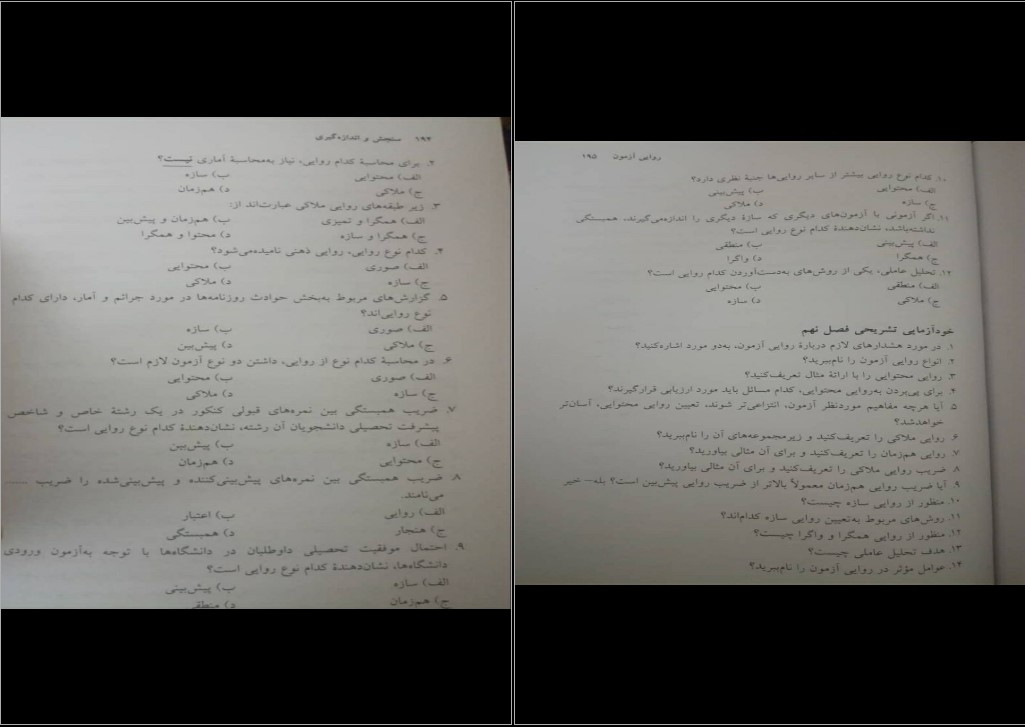 ۱۹۴ سنجش و اندازه‌گیری
۲. برای محاسبهٔ کدام روایی، نیاز به‌محاسبهٔ آماری نیست؟
الف) محتوایی ب) سازه
ج) ملاکی د) هم‌زمان
۳. زیر طبقه‌های روایی ملاکی عبارت‌اند از:
الف) همگرا و تمیزی ب) هم‌زمان و پیش‌بین
ج) همگرا و سازه د) محتوا و همگرا
۴. کدام نوع روایی، روایی ذهنی نامیده‌می‌شود؟
الف) صوری ب) محتوایی
ج) سازه د) ملاکی
۵. گزارش‌های مربوط به‌بخش حوادث روزنامه‌ها در مورد جرائم و آمار، دارای کدام
نوع روایی‌اند؟
الف) صوری ب) سازه
ج) ملاکی د) پیش‌بین
۶. در محاسبهٔ کدام نوع از روایی، داشتن دو نوع آزمون لازم است؟
الف) صوری ب) محتوایی
ج) سازه د) ملاکی
۷. ضریب همبستگی بین نمره‌های قبولی کنکور در یک رشتهٔ خاص و شاخص
پیشرفت تحصیلی دانشجویان آن رشته، نشان‌دهندهٔ کدام نوع روایی است؟
الف) سازه ب) پیش‌بین
ج) محتوایی د) هم‌زمان
۸. ضریب همبستگی بین نمره‌های پیش‌بینی‌کننده و پیش‌بینی‌شده را ضریب ......
می‌نامند.
الف) روایی ب) اعتبار
ج) هنجار د) همبستگی
۹. احتمال موفقیت تحصیلی داوطلبان در دانشگاه‌ها با توجه به‌آزمون ورودی
دانشگاه‌ها، نشان‌دهندهٔ کدام نوع روایی است؟
الف) سازه ب) پیش‌بینی
ج) هم‌زمان د) منطقی
روایی آزمون ۱۹۵
۱۰. کدام نوع روایی بیشتر از سایر روایی‌ها جنبهٔ نظری دارد؟
الف) محتوایی ب) پیش‌بینی
ج) سازه د) ملاکی
۱۱. اگر آزمونی با آزمون‌های دیگری که سازهٔ دیگری را اندازه‌می‌گیرند، همبستگی
نداشته‌باشد، نشان‌دهندهٔ کدام نوع روایی است؟
الف) پیش‌بینی ب) منطقی
ج) همگرا د) واگرا
۱۲. تحلیل عاملی، یکی از روش‌های به‌دست‌آوردن کدام روایی است؟
الف) منطقی ب) محتوایی
ج) ملاکی د) سازه
خودآزمایی تشریحی فصل نهم
۱. در مورد هشدارهای لازم دربارهٔ روایی آزمون، به‌دو مورد اشاره‌کنید؟
۲. انواع روایی آزمون را نام‌ببرید؟
۳. روایی محتوایی را با ارائهٔ مثال تعریف‌کنید؟
۴. برای پی‌بردن به‌روایی محتوایی، کدام مسائل باید مورد ارزیابی قرارگیرند؟
۵. آیا هرچه مفاهیم موردنظر آزمون، انتزاعی‌تر شوند، تعیین روایی محتوایی، آسان‌تر
خواهدشد؟
۶. روایی ملاکی را تعریف‌کنید و زیرمجموعه‌های آن را نام‌ببرید؟
۷. روایی هم‌زمان را تعریف‌کنید و برای آن مثالی بیاورید؟
۸. ضریب روایی ملاکی را تعریف‌کنید و برای آن مثالی بیاورید؟
۹. آیا ضریب روایی هم‌زمان معمولاً بالاتر از ضریب روایی پیش‌بین است؟ بله– خیر
۱۰. منظور از روایی سازه چیست؟
۱۱. روش‌های مربوط به‌تعیین روایی سازه کدام‌اند؟
۱۲. منظور از روایی همگرا و واگرا چیست؟
۱۳. هدف تحلیل عاملی چیست؟
۱۴. عوامل مؤثر در روایی آزمون را نام‌ببرید؟